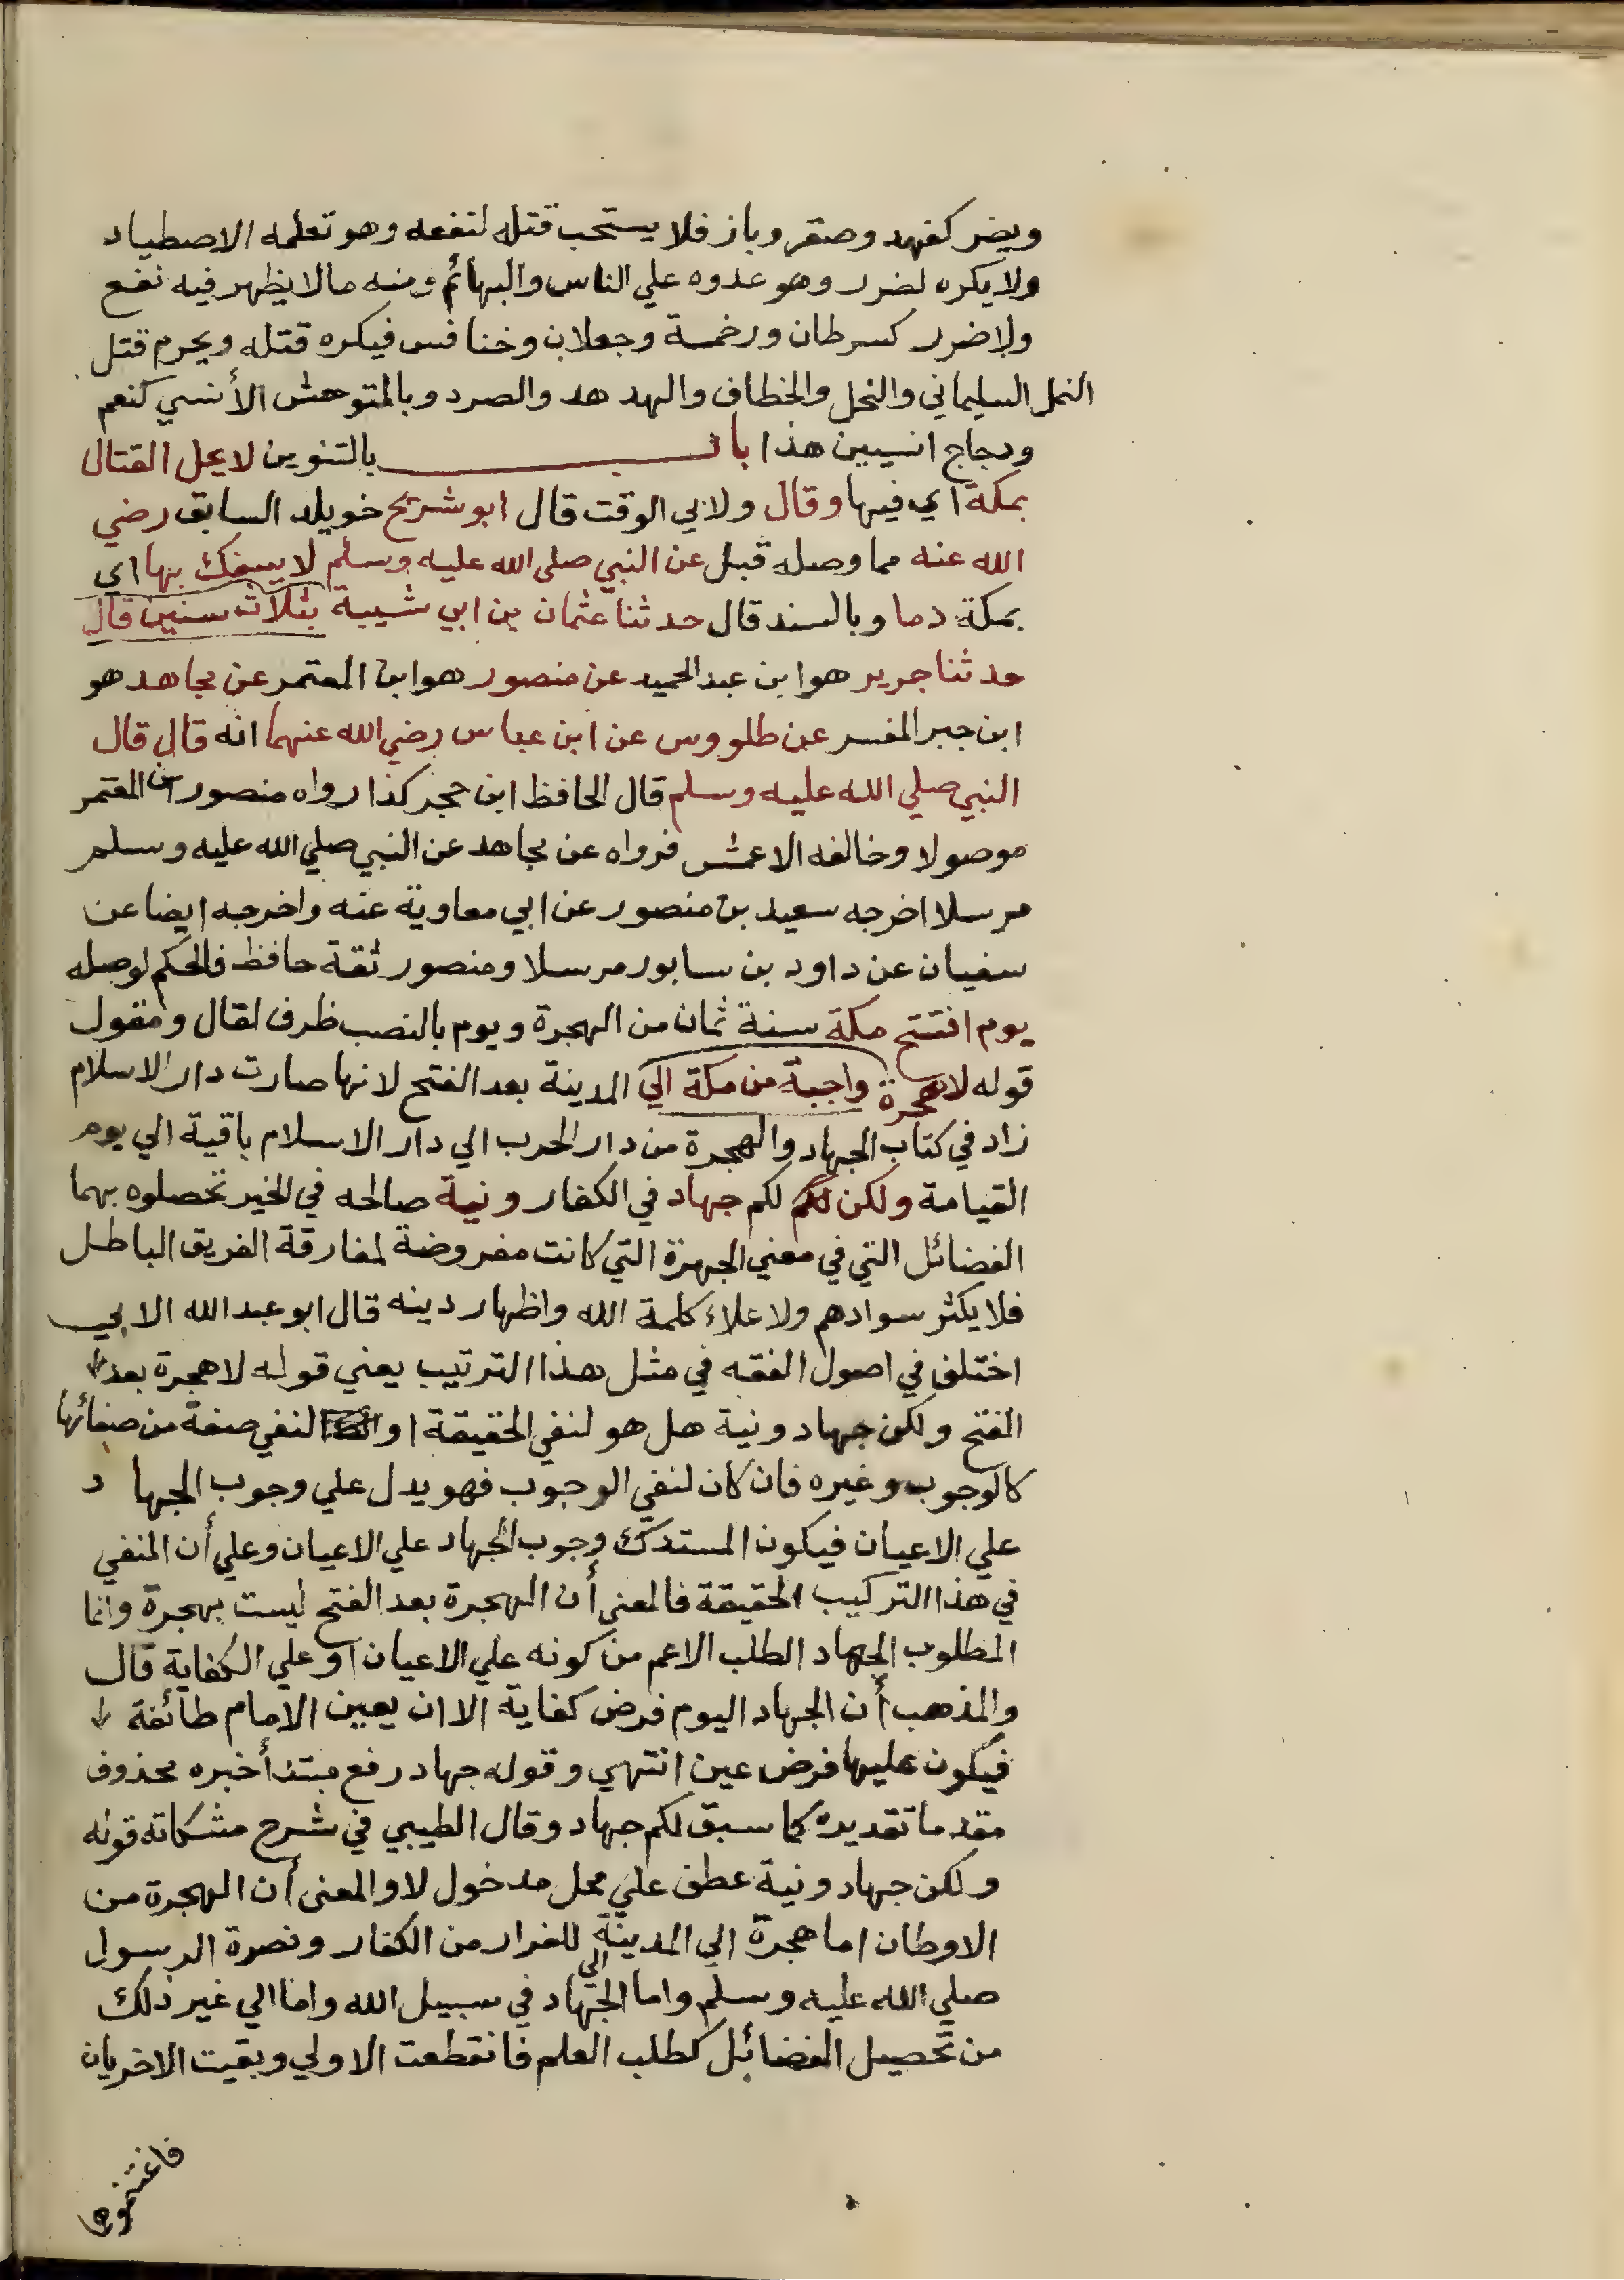 ويضر كفهد وصقر وباز فلا يستحب قتله لنفعه وهو تعلمه الاصطياد
ولا يكره لضرر وهو عدوه علي الناس والبهائم ومنه مالا يظهر فيه نفع
ولا ضرر كسرطان ورخمة وجعلان وخنافس فيكره قتله ويحرم قتل
النمل السليماني والنحل والخطاف والهدهد والصرد وبالمتوحش الأنسي كنعم
ودجاج انسيين هذا باب بالتنوين لا يحل القتال
بمكة اي فيها وقال ولابي الوقت قال ابو شريح خويلد السابق رضي
الله عنه مما وصله قبل عن النبي صلى الله عليه وسلم لا يسفك بها اي
بمكة دما وبالسند قال حدثنا عثمان بن ابي شيبة بثلاث سنين قال
حدثنا جرير هو ابن عبد الحميد عن منصور هو ابن المعتمر عن مجاهد هو
ابن جبر المفسر عن طاووس عن ابن عباس رضي الله عنهما انه قال قال
النبي صلي الله عليه وسلم قال الحافظ ابن حجر كذا رواه منصور بن المعتمر
موصولا وخالفه الاعمش فرواه عن مجاهد عن النبي صلي الله عليه وسلم
مرسلا اخرجه سعيد بن منصور عن ابي معاوية عنه واخرجه ايضا عن
سفيان عن داود بن سابور مرسلا ومنصور ثقة حافظ فالحكم لوصله
يوم افتتح مكة سنة ثمان من الهجرة ويوم بالنصب ظرف لقال ومقول
قوله لا هجرة واجبة من مكة الي المدينة بعد الفتح لانها صارت دار الاسلام
زاد في كتاب الجهاد والهجرة من دار الحرب الي دار الاسلام باقية الي يوم
القيامة ولكن لكم لكم جهاد في الكفار ونية صالحه في الخير تحصلوه بهما
الفضائل التي في معني الجهرة التي كانت مفروضة لمفارقة الفريق الباطل
فلا يكثر سوادهم ولاعلاء كلمة الله واظهار دينه قال ابو عبد الله الابي
اختلف في اصول الفقه في مثل هذا الترتيب يعني قوله لا هجرة بعد
الفتح ولكن جهاد ونية هل هو لنفي الحقيقة او لنفي صفة من صفائها
كالوجوب وغيره فان كان لنفي الوجوب فهو يدل علي وجوب الجهاد
علي الاعيان فيكون المستدك وجوب الجهاد علي الاعيان وعلي أن المنفي
في هذا التركيب الحقيقة فالمعنى أن الهجرة بعد الفتح ليست بهجرة وانما
المطلوب الجهاد الطلب الاعم من كونه علي الاعيان او علي الكفاية قال
والمذهب أن الجهاد اليوم فرض كفاية الا ان يعين الامام طائفة
فيكون عليها فرض عين انتهي وقوله جهاد رفع مبتدأ خبره محذوف
مقدما تقديره كما سبق لكم جهاد وقال الطيبي في شرح مشكاته قوله
ولكن جهاد ونية عطف علي محل مدخول لا والمعنى أن الهجرة من
الاوطان اما هجرة الي المدينة للفرار من الكفار ونصرة الرسول
صلي الله عليه وسلم واما الي الجهاد في سبيل الله واما الي غير ذلك
من تحصيل الفضائل كطلب العلم فانقطعت الاولي وبقيت الاخريان
فاغتنموها